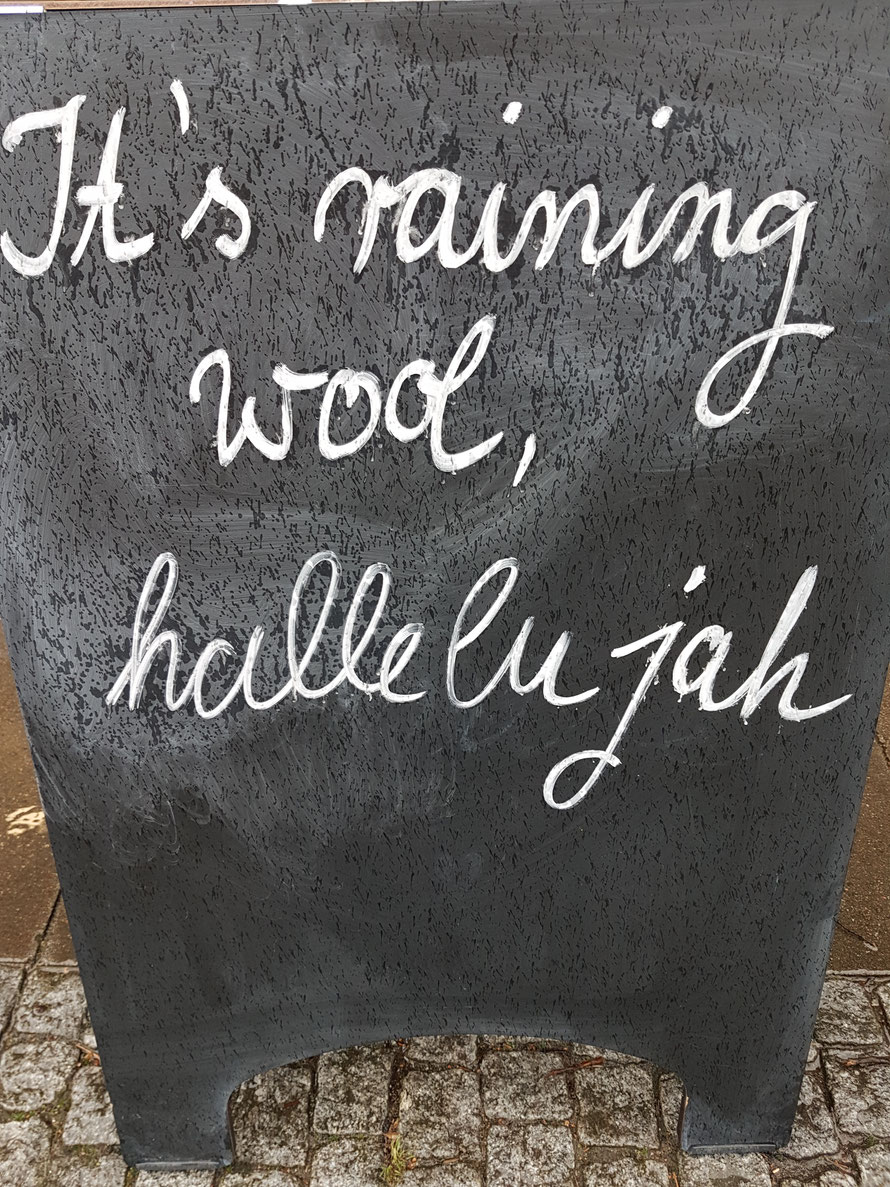 It's raining
wool,
hallelujah